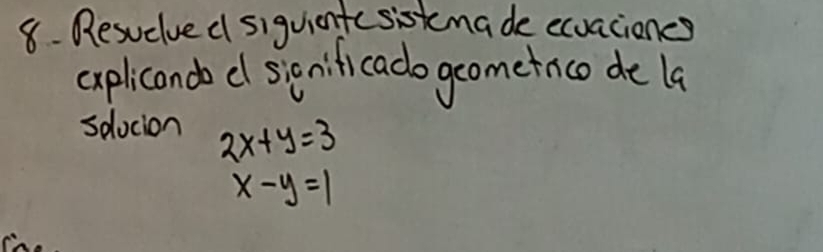 8- Resuelve el siguiente sistema de ecuaciones
explicando el significado geometrico de la
solucion
2x+y=3
x-y=1